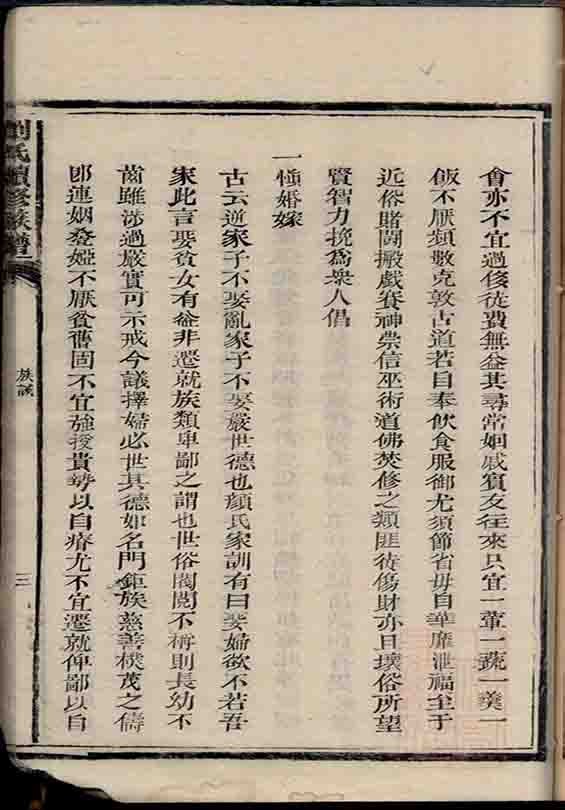 會亦不宜過侈徒費無益其尋常姻戚賓友往來只宜一葷一蔬一羹一
飯不厭頻數克敦古道若自奉飲食服御尤須節省毋自華靡泄福至于
近俗賭鬬搬戲賽神祟信巫術道佛焚修之類匪徒傷財亦且壞俗所望
賢智力挽爲衆人倡
一慎婚嫁
古云逆家子不娶亂家子不娶嚴世德也顏氏家訓有曰娶婦欲不若吾
家此言娶貧女有益非遷就族類卑鄙之謂也世俗閥閱不稱則長幼不
齒雖涉過嚴實可示戒今議擇婦必世其德如名門鉅族慈善樸茂之儔
即連姻發婭不厭貧舊固不宜強授貴勢以自瘠尤不宜遷就俾鄙以自
劉氏續修族譜
族議
三